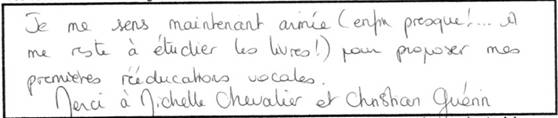 Je me sens maintenant armée (enfin presque!... il
me reste à étudier les livres!) pour proposer mes
premières rééducations vocales.
Merci à Michelle Chevalier et Christian Guérin